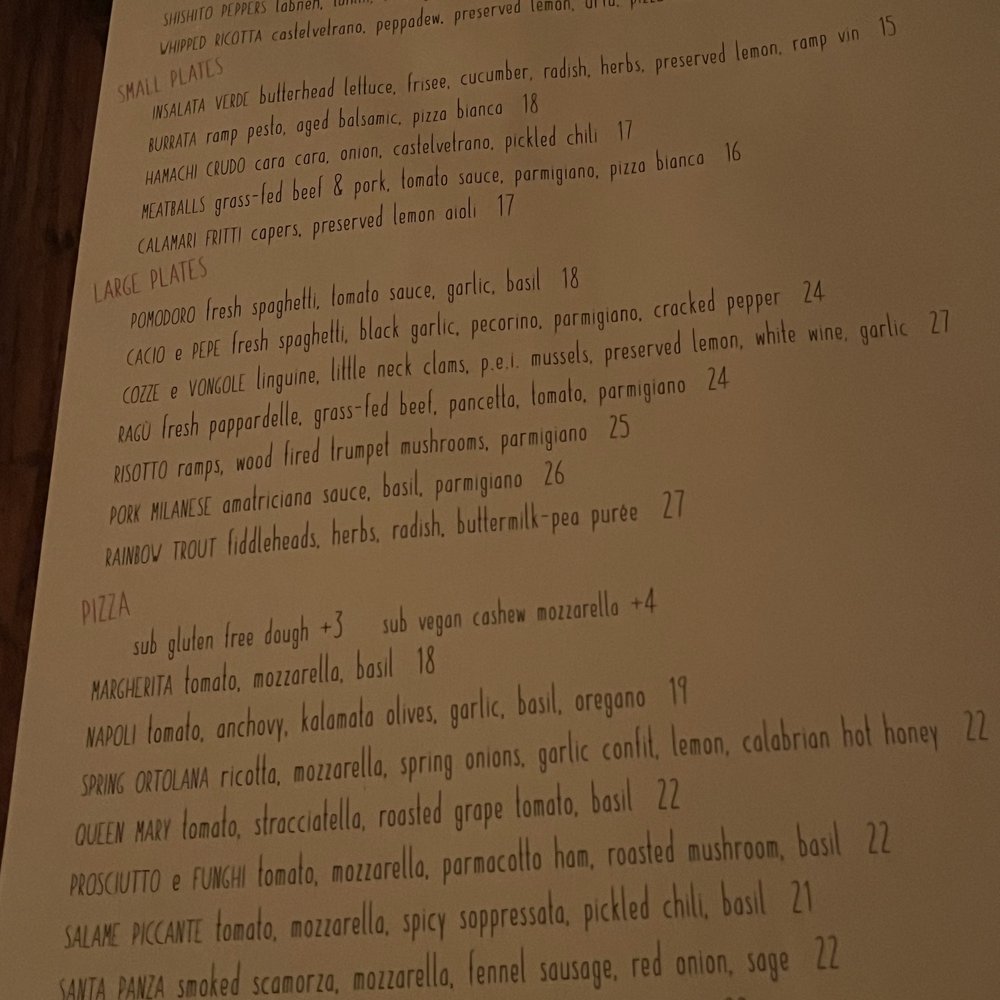 SHISHITO PEPPERS labneh,
WHIPPED RICOTTA castelvetrano, peppadew, preserved lemon,
SMALL PLATES
INSALATA VERDE butterhead lettuce, frisee, cucumber, radish, herbs, preserved lemon, ramp vin 15
BURRATA ramp pesto, aged balsamic, pizza bianca 18
HAMACHI CRUDO cara cara, onion, castelvetrano, pickled chili 17
MEATBALLS grass-fed beef & pork, tomato sauce, parmigiano, pizza bianca 16
CALAMARI FRITTI capers, preserved lemon aioli 17
LARGE PLATES
POMODORO fresh spaghetti, tomato sauce, garlic, basil 18
CACIO e PEPE fresh spaghetti, black garlic, pecorino, parmigiano, cracked pepper 24
COZZE e VONGOLE linguine, little neck clams, p.e.i. mussels, preserved lemon, white wine, garlic 27
RAGÙ fresh pappardelle, grass-fed beef, pancetta, tomato, parmigiano 24
RISOTTO ramps, wood fired trumpet mushrooms, parmigiano 25
PORK MILANESE amatriciana sauce, basil, parmigiano 26
RAINBOW TROUT fiddleheads, herbs, radish, buttermilk-pea purée 27
PIZZA
sub gluten free dough +3 sub vegan cashew mozzarella +4
MARGHERITA tomato, mozzarella, basil 18
NAPOLI tomato, anchovy, kalamata olives, garlic, basil, oregano 19
SPRING ORTOLANA ricotta, mozzarella, spring onions, garlic confit, lemon, calabrian hot honey 22
QUEEN MARY tomato, stracciatella, roasted grape tomato, basil 22
PROSCIUTTO e FUNGHI tomato, mozzarella, parmacotto ham, roasted mushroom, basil 22
SALAME PICCANTE tomato, mozzarella, spicy soppressata, pickled chili, basil 21
SANTA PANZA smoked scamorza, mozzarella, fennel sausage, red onion, sage 22